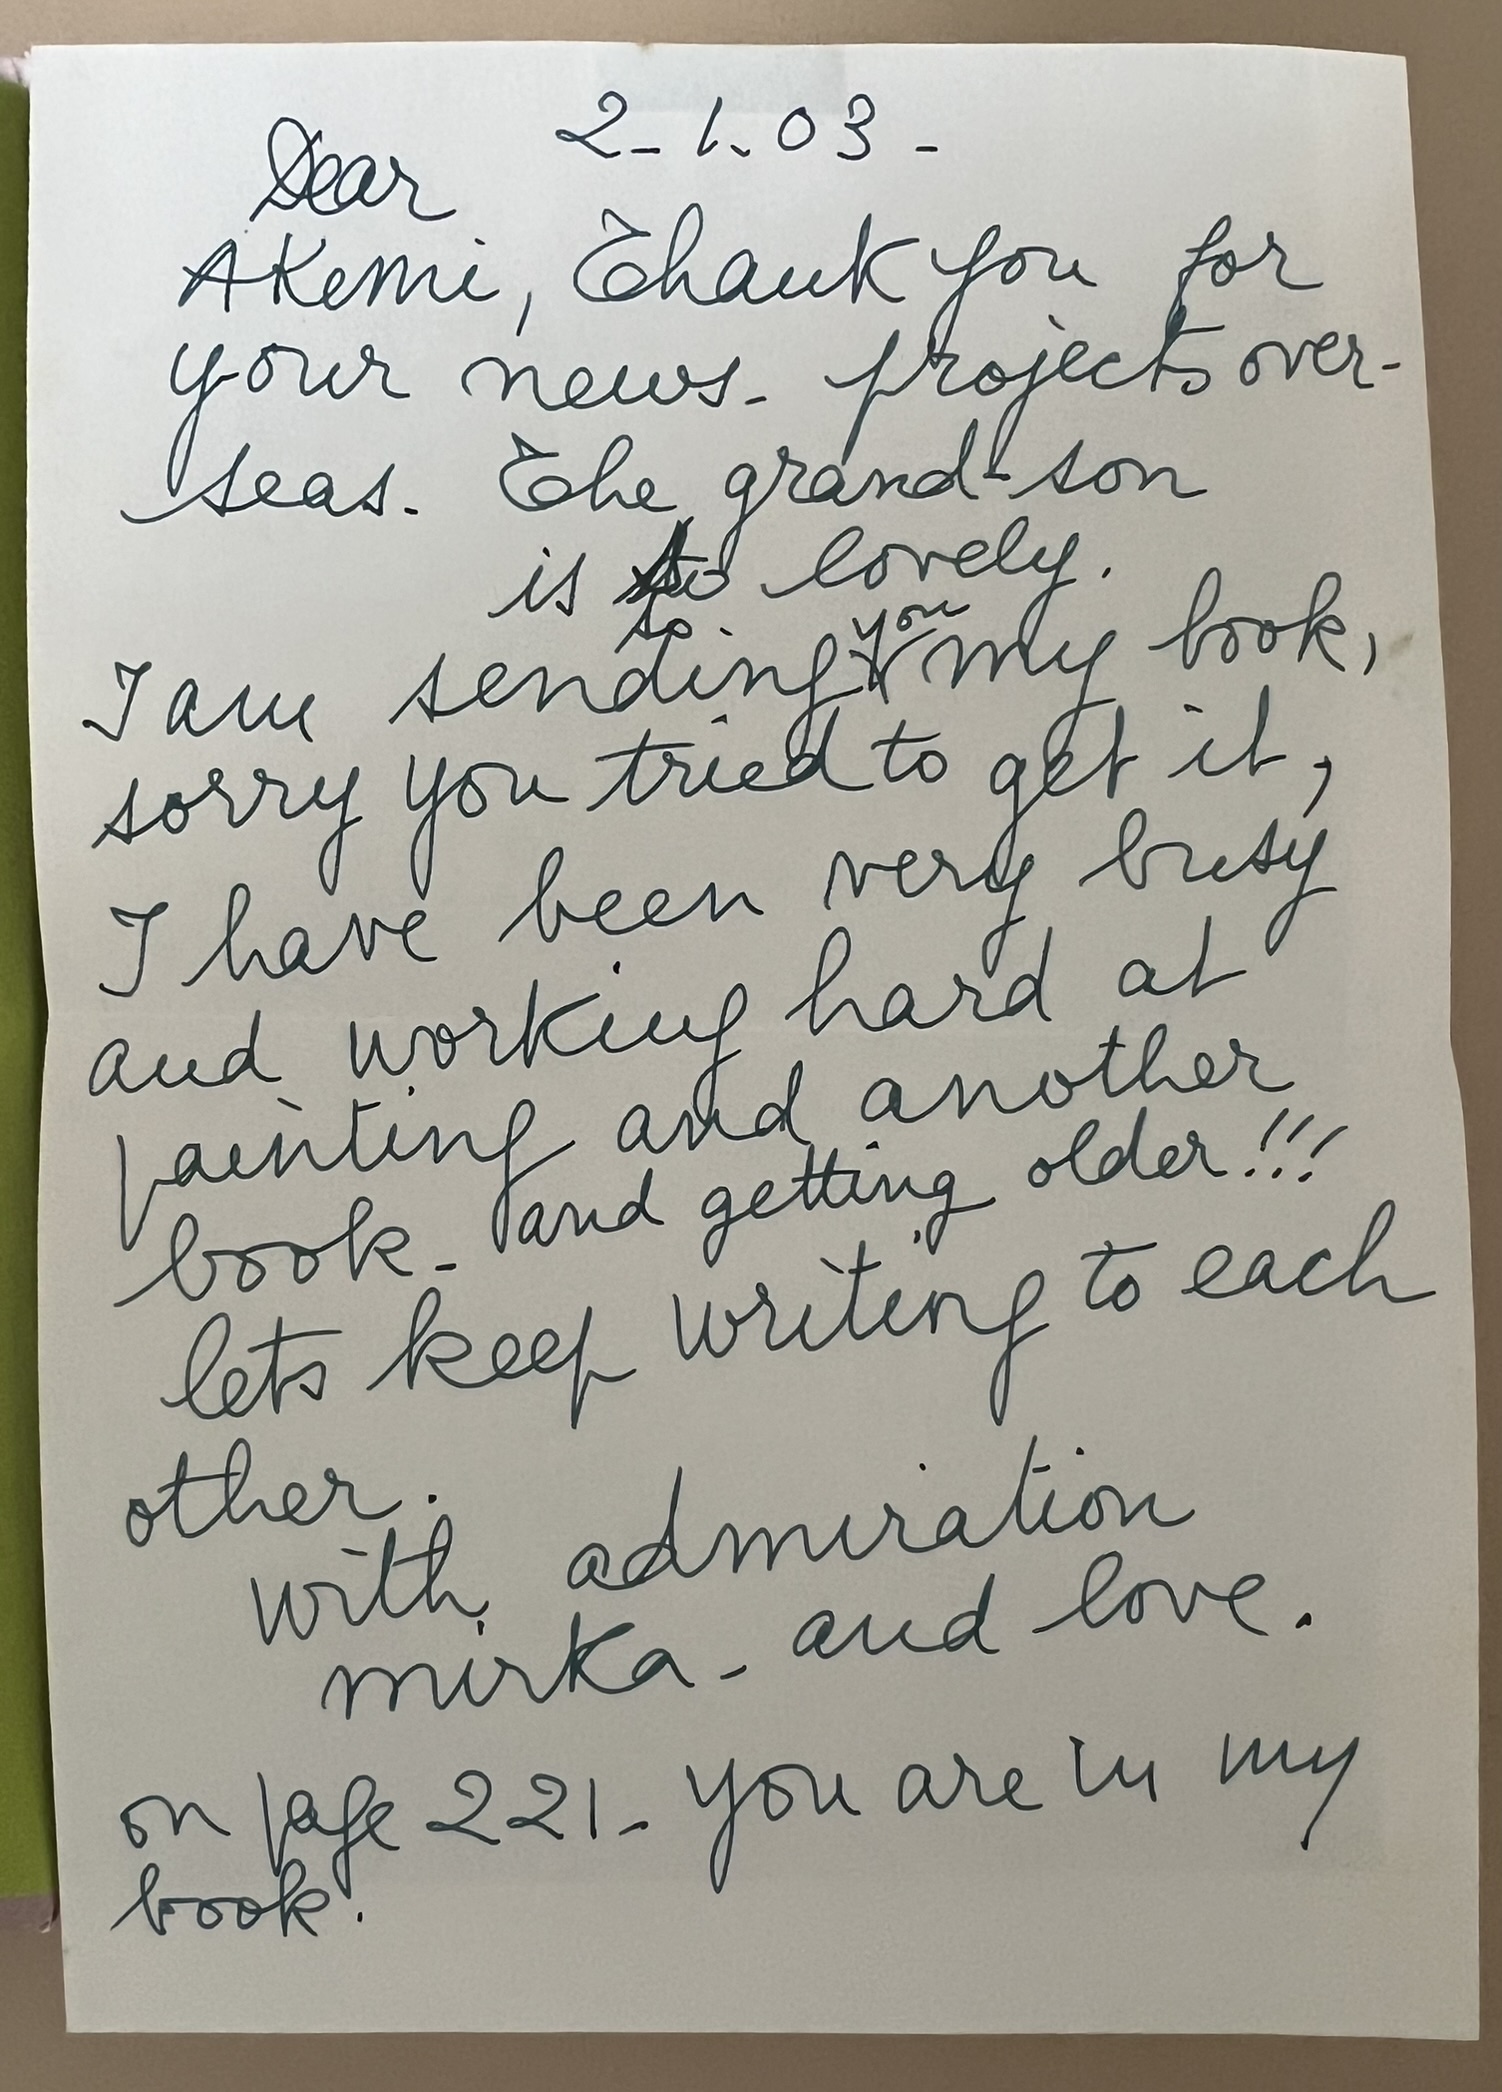 2-1.03-
Dear
Akemi, Thank you for
your news- projects over-
seas. The grand-son
is so lovely.
so
I am sending you my book,
sorry you tried to get it,
I have been very busy
and working hard at
painting and another
book- and getting older!!!
lets keep writing to each
other.
with admiration
mirka- and love.
on page 221- you are in my
book.